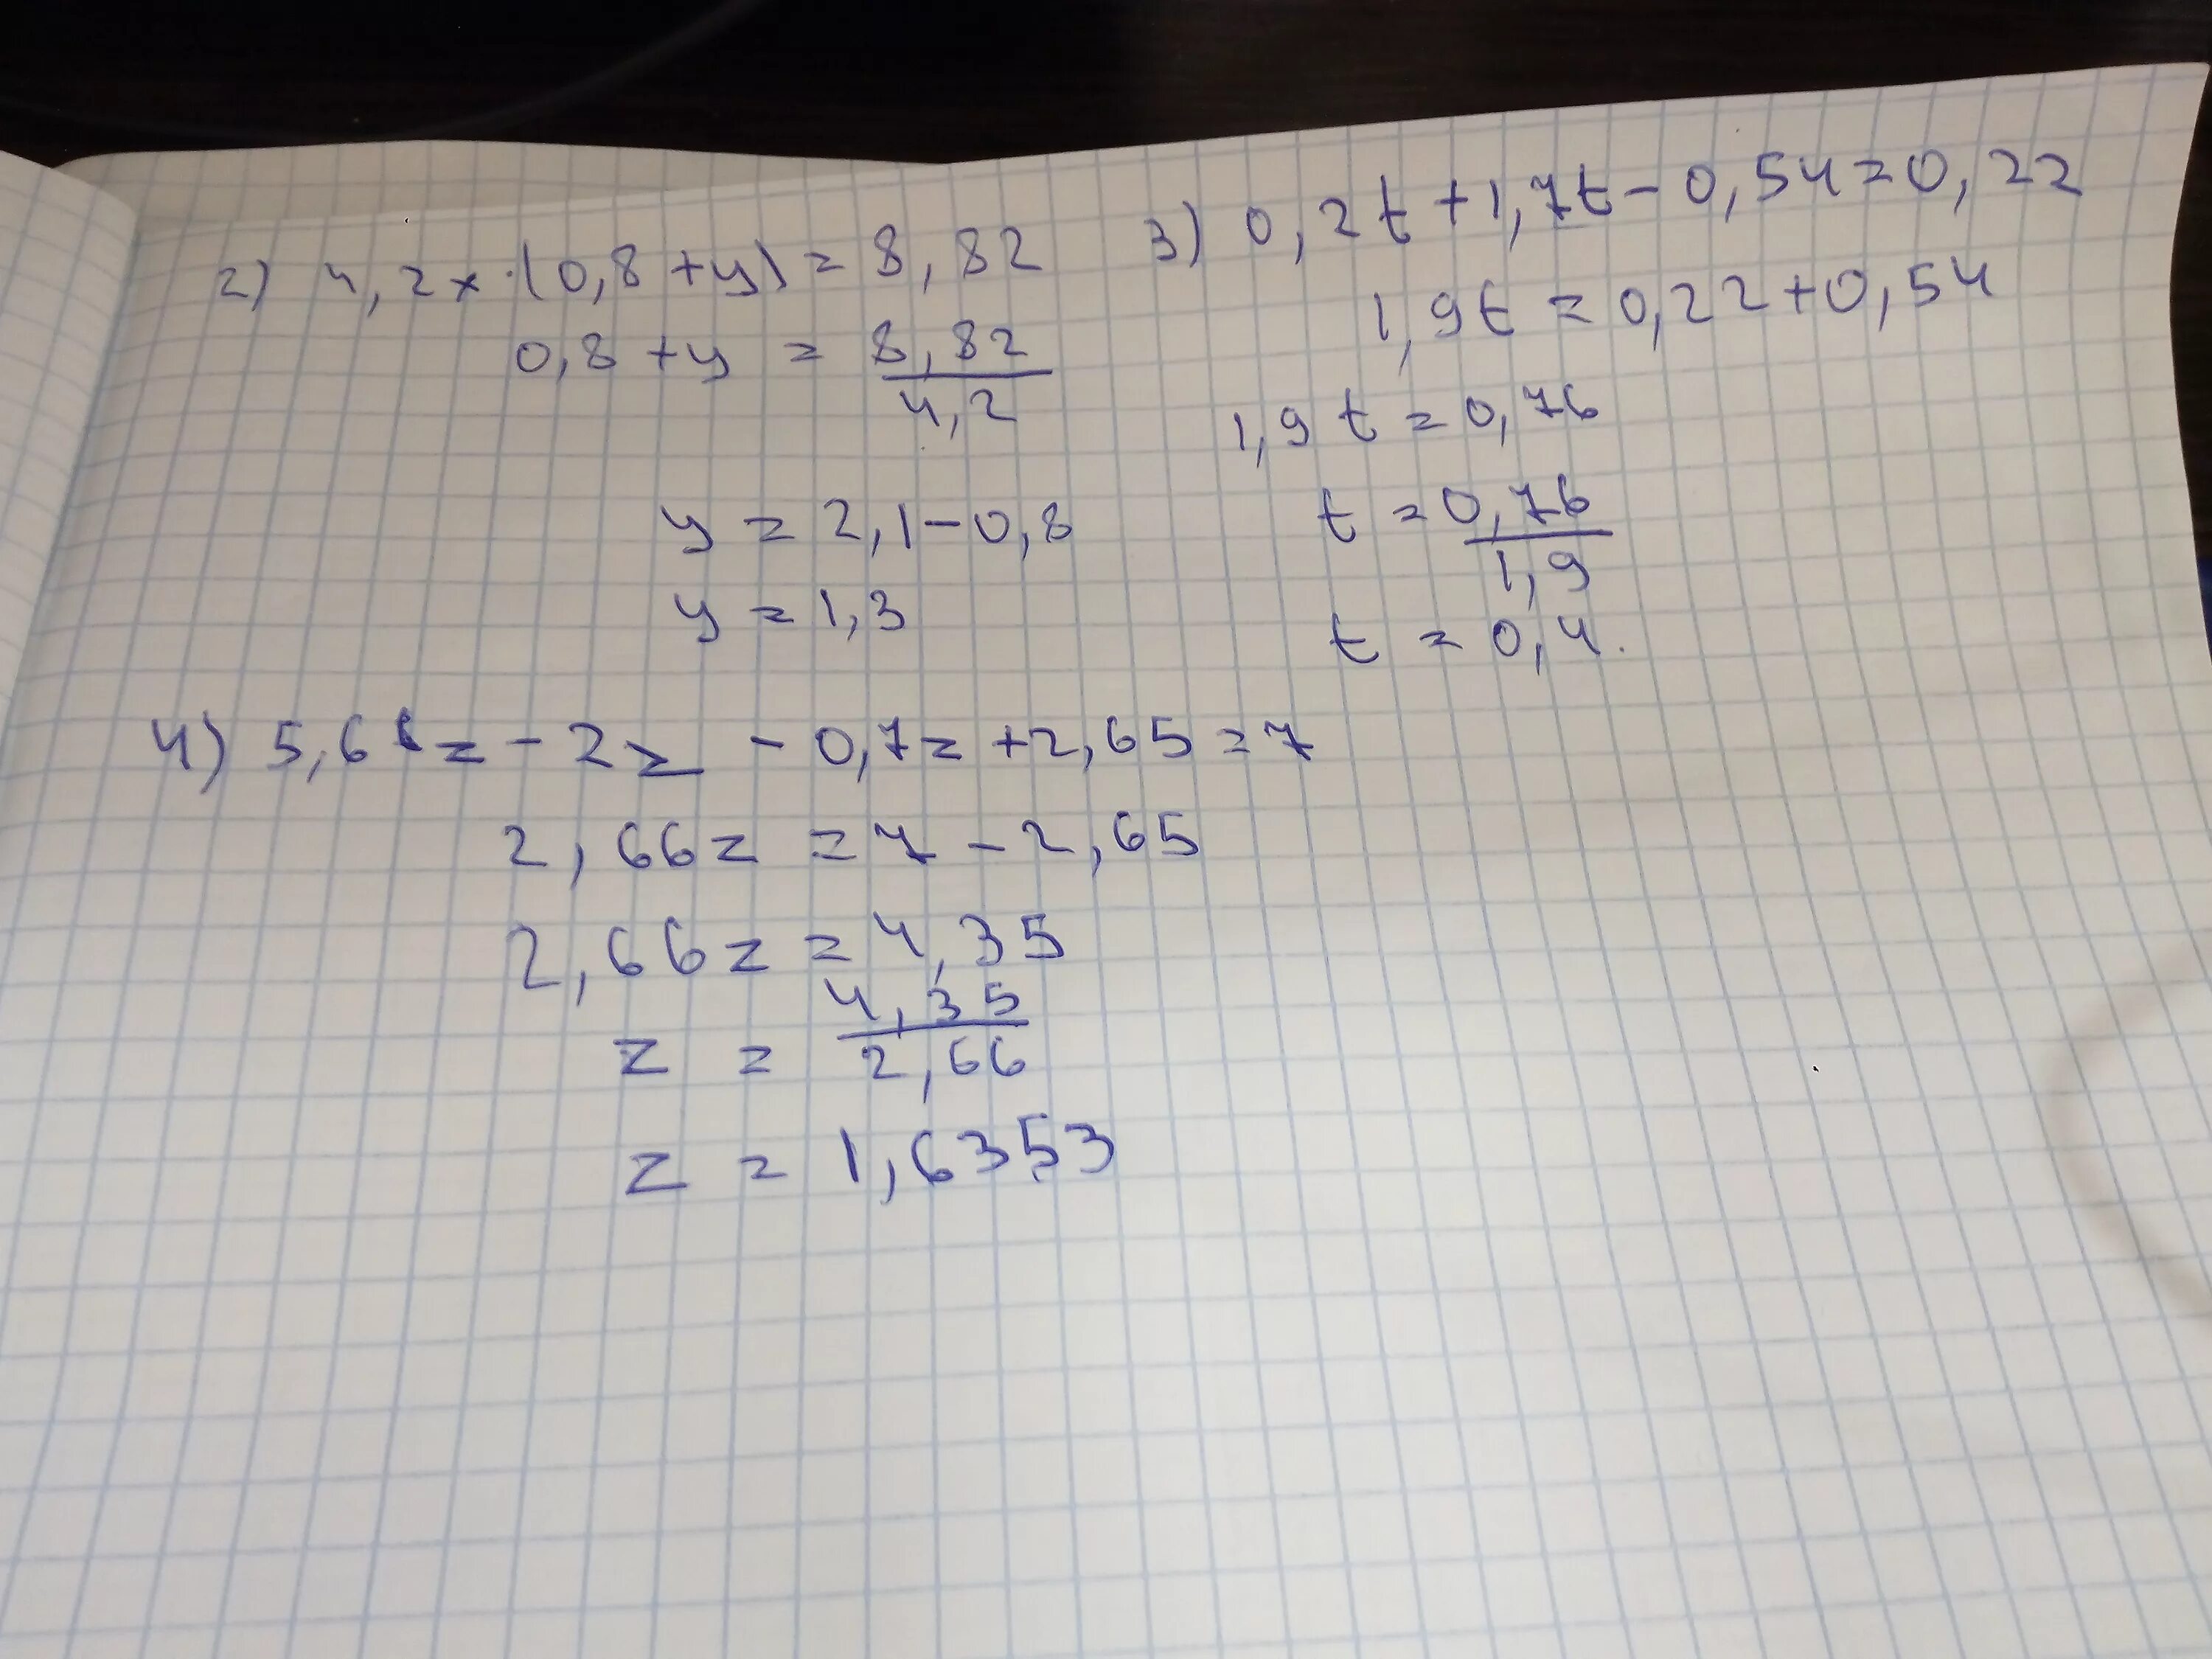 2) 4,2 × · (0,8 + y) = 8,82
0,8 + y = 8,82 / 4,2
y = 2,1 - 0,8
y = 1,3
3) 0,2t + 1,7t - 0,54 = 0,22
1,9t = 0,22 + 0,54
1,9t = 0,76
t = 0,76 / 1,9
t = 0,4.
4) 5,6z - 2z - 0,7z + 2,65 = 7
2,66z = 7 - 2,65
2,66z = 4,35
z = 4,35 / 2,66
z = 1,6353